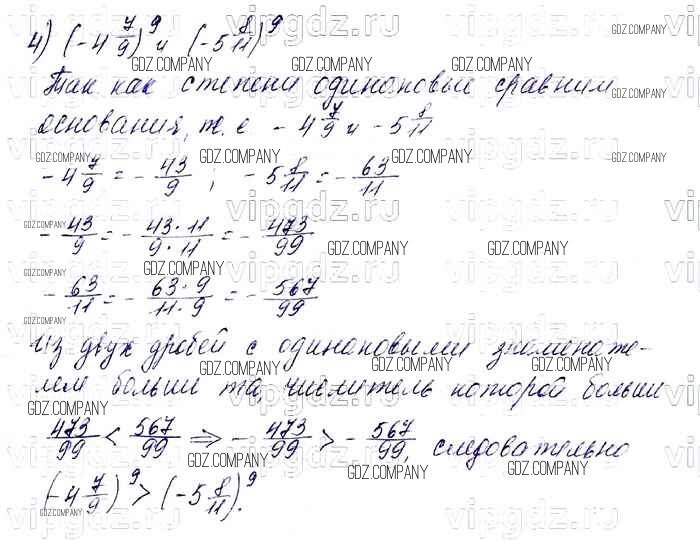 4) (-4 7/9)^9 и (-5 8/11)^9
Так как степени одинаковые сравним
основания, т. е -4 7/9 и -5 8/11
-4 7/9 = -43/9 ; -5 8/11 = -63/11
-43/9 = -43·11/9·11 = -473/99
-63/11 = -63·9/11·9 = -567/99
Из двух дробей с одинаковыми знаменате-
лем больше та, числитель которой больше
473/99 < 567/99 ⇒ -473/99 > -567/99, следовательно
(-4 7/9)^9 > (-5 8/11)^9.
vipgdz.ru
GDZ.COMPANY